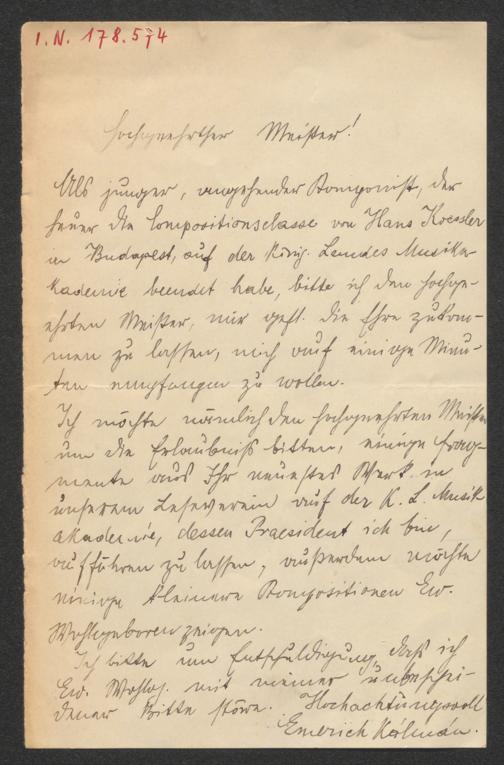 I. N. 178.574
Hochgeehrter Meister!
Als junger, angehender Komponist, der
heuer die Compositionsclasse von Hans Koessler
in Budapest, auf der Königl. Landes Musika-
kademie beendet habe, bitte ich den hochge-
ehrten Meister, mir gefl. die Ehre zukom-
men zu lassen, mich auf einige Minu-
ten empfangen zu wollen.
Ich möchte nämlich den hochgeehrten Meister
um die Erlaubniß bitten, einige Frag-
mente aus Ihr neuestes Werk in
unserem Leseverein auf der K. L. Musik
akademie, dessen Praesident ich bin,
aufführen zu lassen, außerdem möchte
einige kleinere Kompositionen Ew.
Wohlgeboren zeigen.
Ich bitte um Entschuldigung, daß ich
Ew. Wohlg. mit meiner unbeschei-
dener Bitte störe. Hochachtungsvoll
Emerich Kálmán.